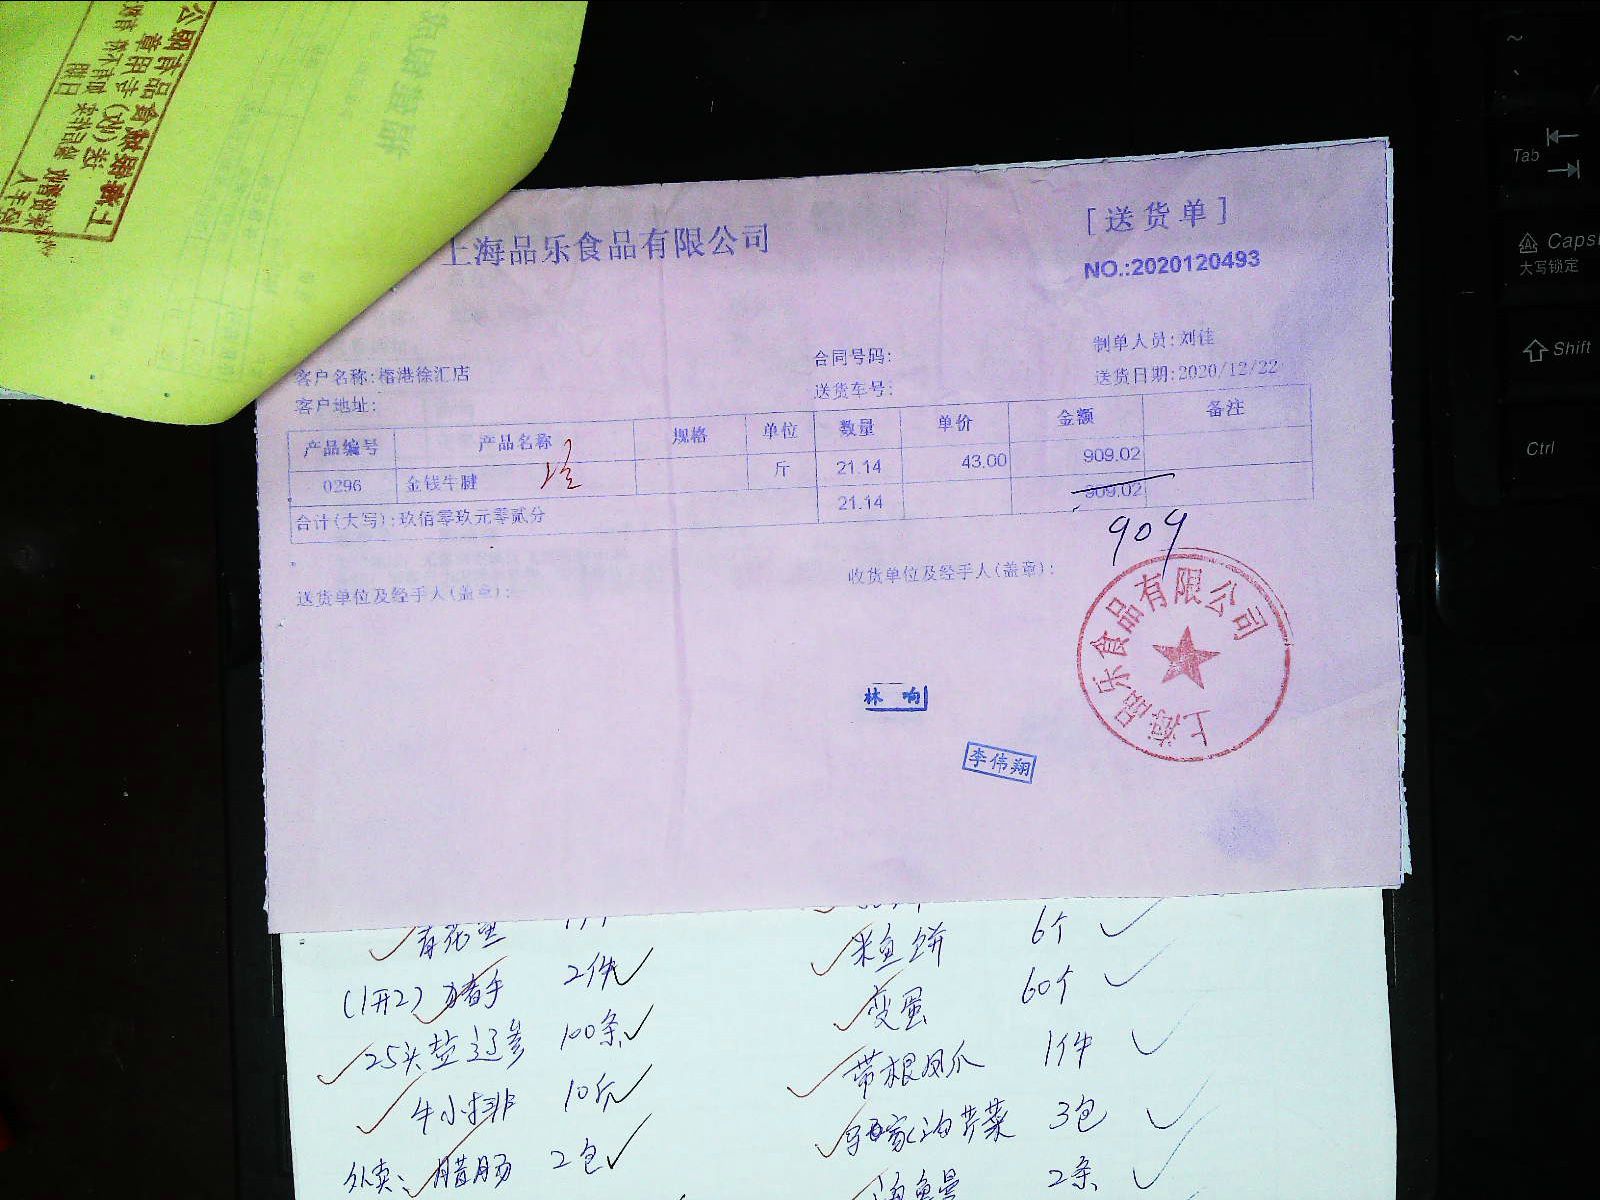 上海品乐食品有限公司
[送货单]
NO.:2020120493
合同号码:
制单人员:刘佳
客户名称:榴港徐汇店
送货车号:
送货日期:2020/12/22
客户地址:
产品编号 产品名称 规格 单位 数量 单价 金额 备注
0296 金钱牛腱 斤 21.14 43.00 909.02
合计(大写):玖佰零玖元零贰分 21.14 909.02
909
送货单位及经手人(盖章):
收货单位及经手人(盖章):
上海品乐食品有限公司
林响
李伟翔
米鱼饼 6个
(1开2)猪手 2件
变蛋 60个
25头盐辽参 100条
带根凤爪 1件
牛小排 10斤
3包
外卖: 腊肠 2包
2条
~
Tab
Caps
大写锁定
Shift
Ctrl